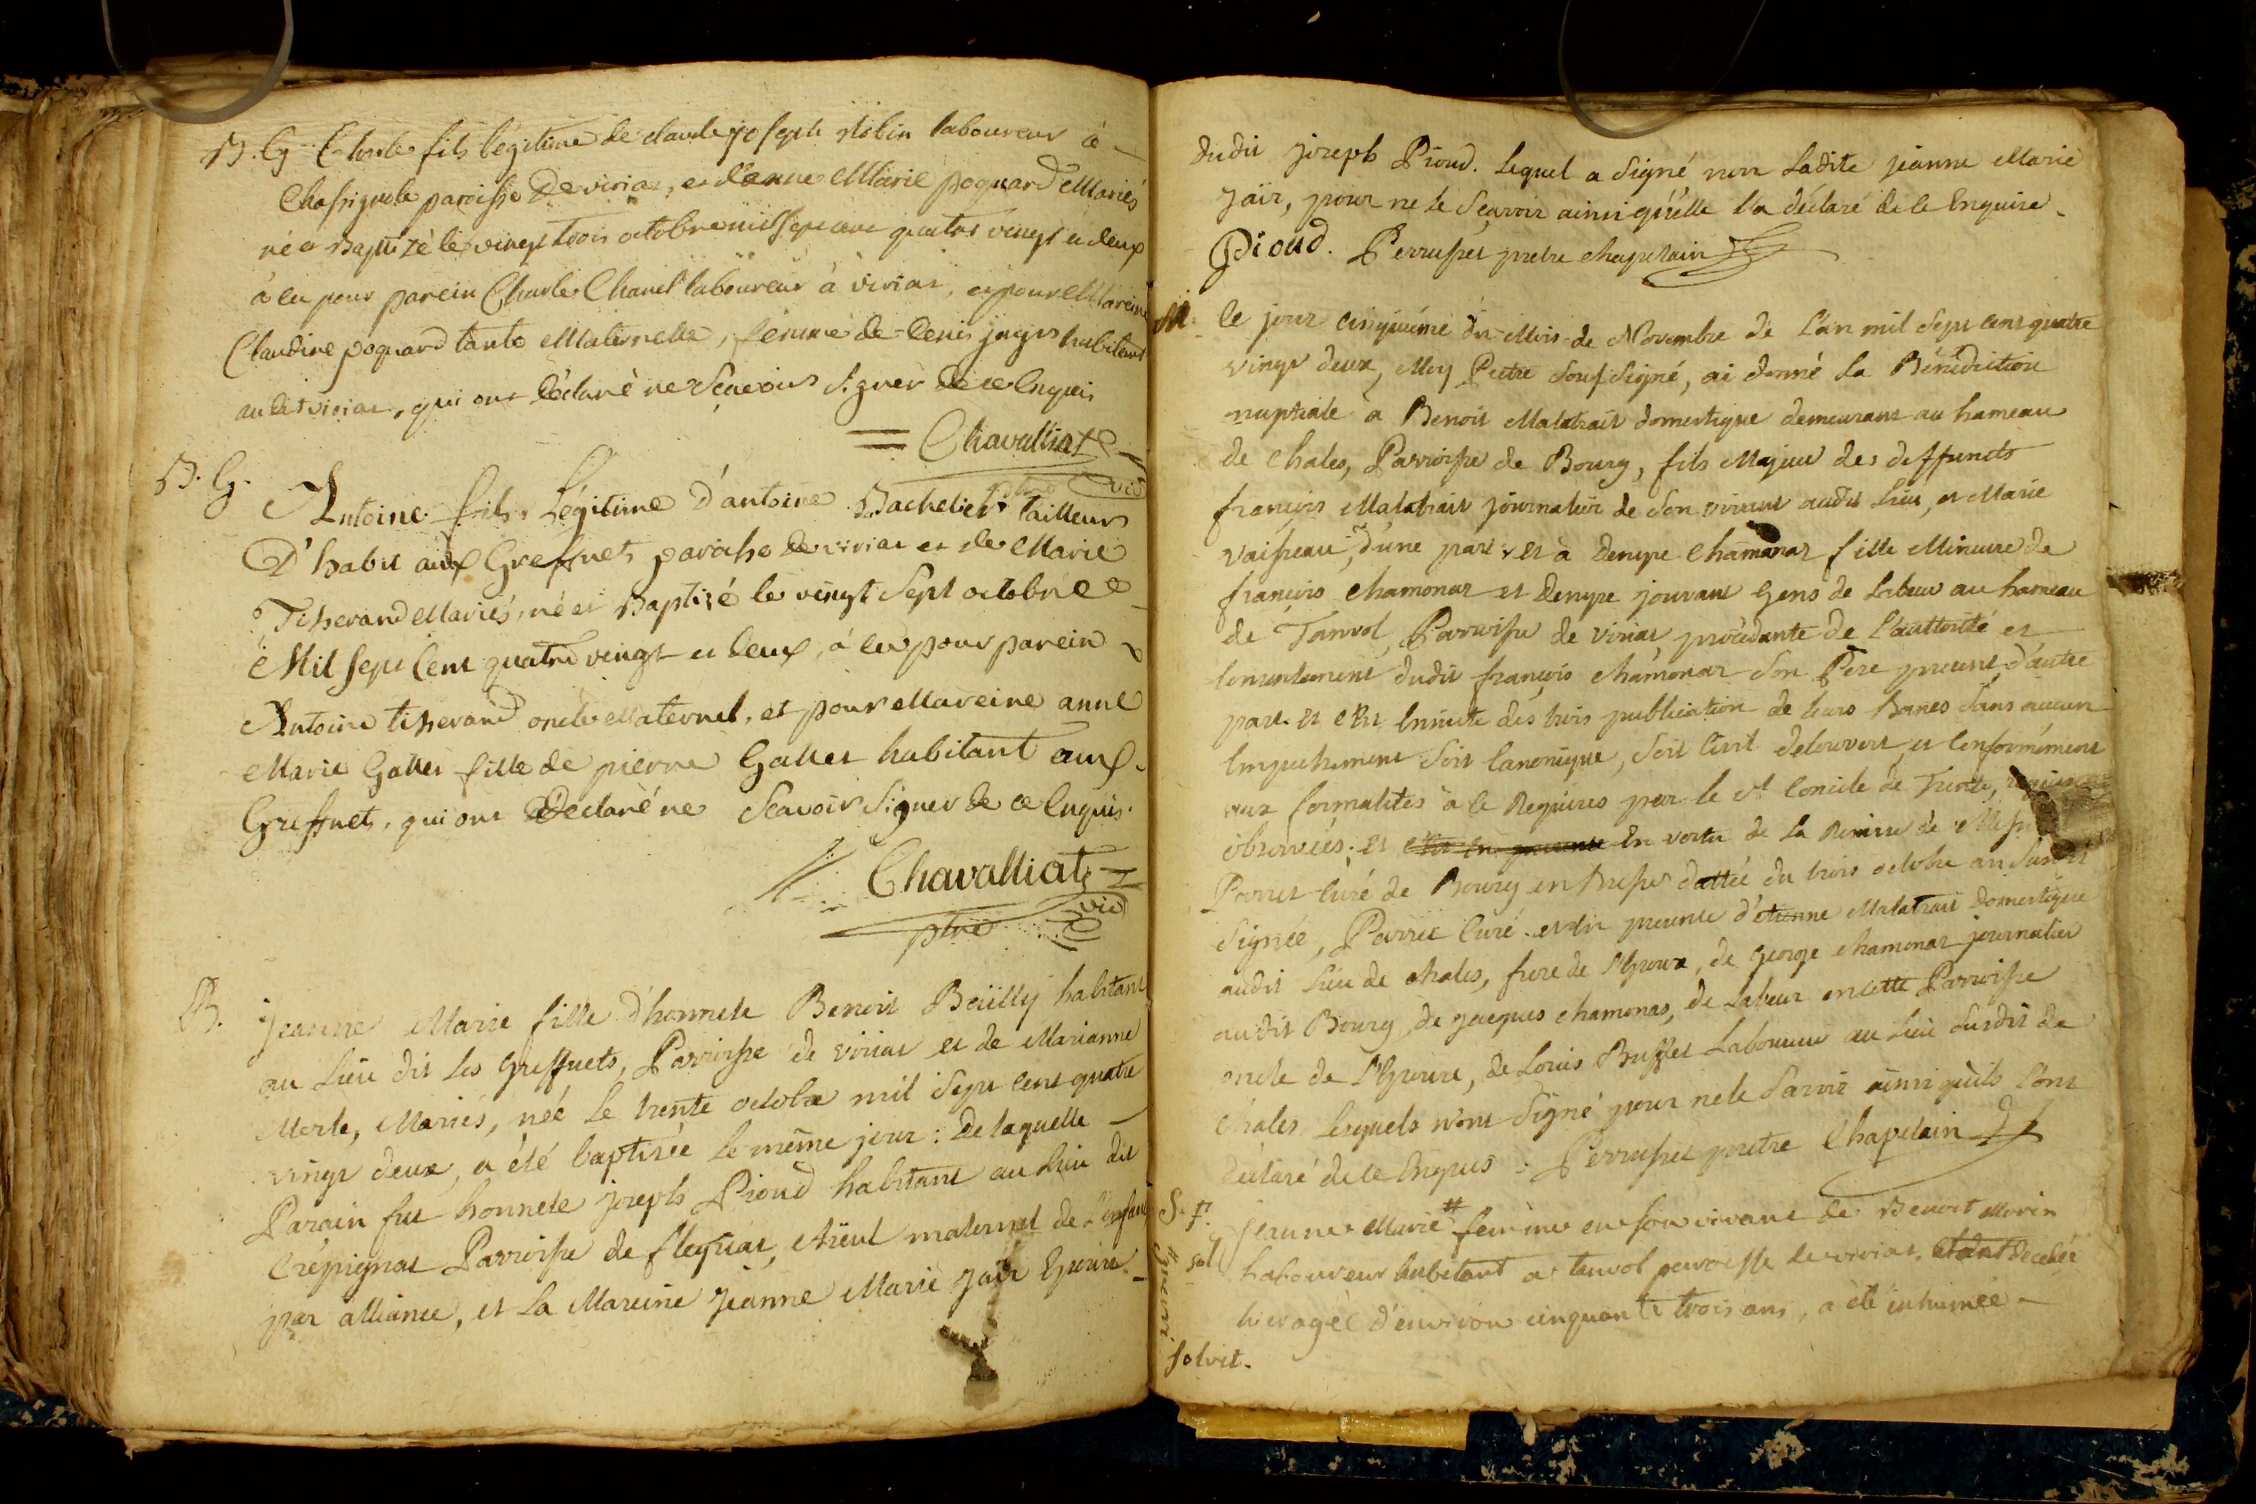 B. G. Charles fils légitime de claude joseph Robin laboureur à
Chassignole paroisse De viriat, et d'anne Marie poguard Mariés
né et Baptizé le vingt trois octobre mil sept cent quatre vingt et deux
à eu pour parein Charles Chanel laboureur à viriat, et pour Mareine
Claudine poguard tante Maternelle, femme de denis habitant
audit viriat, qui ont Déclaré ne Scavoir signer de ce Enquis
Chavalliat
vic
B. G.
Antoine fils Légitime d'antoine Bachelier tailleur
D'habit aux Greffnets paroisse de viriat et de Marie
Tisserand Mariés, né et Baptizé le vingt Sept octobre
Mil Sept Cent quatre vingt et deux, à eu pour parein
Antoine tisserand oncle Maternel, et pour Mareine anne
Marie Gallet fille de pierre Gallet habitant aux
Greffnets, qui ont Déclaré ne Scavoir Signer de ce Enquis.
Chavalliat
ptre vic
B. Jeanne Marie fille d'honnete Benoit Boüilly habitant
au Lieu dit Les Greffnets, Parroisse de viriat et de Marianne
Merle, Mariés, née Le trente octobre mil Sept Cent quatre
vingt deux, a été baptisée Le même jour : De laquelle
Parain fut honnete joseph Pioud habitant au Lieu dit
Crépignat Parroisse de fleyriat, Aïeul maternel de L'enfant
par alliance, et La Mareine Jeanne Marie Jaïr Epouse
dudit joseph Pioud. Lequel a Signé non Ladite jeanne Marie
Jaïr, pour ne le Sçavoir ainsi qu'elle l'a déclaré de ce Enquise
Pioud. Perrusset pretre chapelain
M. Le jour cinquiéme du Mois de Novembre de L'an mil Sept cent quatre
vingt deux, Moy Pretre Soussigné, ai donné La Bénédiction
nuptiale à Benoit Malatrait domestique demeurant au hameau
de Chales, Parroisse de Bourg, fils Majeur des deffuncts
françois Malatrait journalier de Son vivant audit Lieu, et Marie
vaisseau, d'une part, et à Denyse Chamonar fille Mineure de
françois Chamonar et Denyse jouvant Gens de Labeur au hameau
de Tanvol, Parroisse de viriat, procédante de L'authorité et
Consentement dudit françois Chamonar Son Pere présent, d'autre
part. et ensuite des trois publication de leurs Bannes Sans aucun
Empechement Soit Canonique, Soit Civil decouvert, et Conformément
aux formalités à ce Requises par le St Concile de Trente,
observées; et en vertu de La Remise de
curé de Bourg en Bresse dattée du trois octobre an Susdit
Signée, curé. et en presence d'etienne Malatrait Domestique
audit Lieu de chales, frere de L'Epoux, de George chamonar journalier
audit Bourg, de Jacques chamonar, de Labeur en cette Parroisse
oncle de L'Epouse, de Louis Buffet Laboureur au Lieu Susdit de
Chales Lesquels n'ont Signé pour ne le Savoir ainsi qu'ils L'ont
déclaré de ce Enquis. Perrusset pretre Chapelain
S. f. Jeanne Marie # femme en son vivant de Benoit Morin
sol laboureur habitant a tanvol parroisse de viriat.
agée d'environ cinquante trois ans, a été inhumée
solvit.